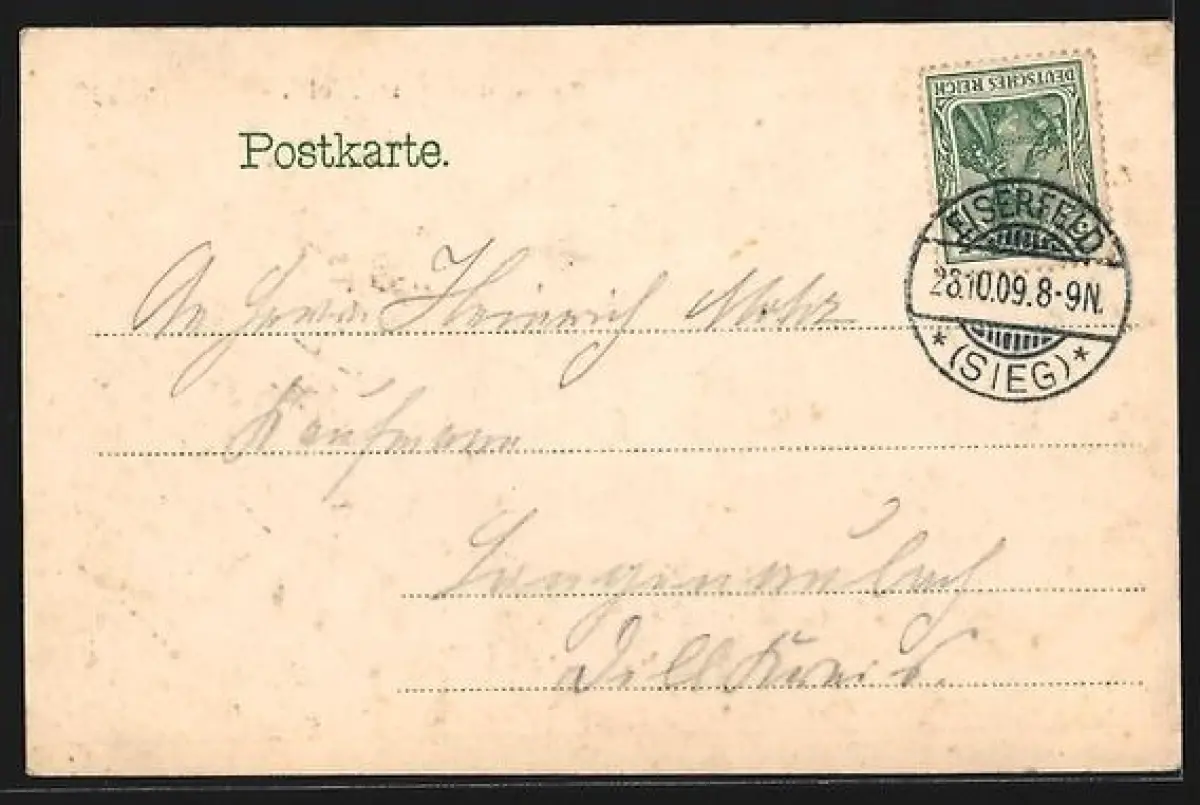 Postkarte.
DEUTSCHES REICH
EISERFELD
28.10.09.8-9N.
* (SIEG) *
An Herrn Heinrich Mohr
Kaufmann
Langenaubach
Dillkreis.